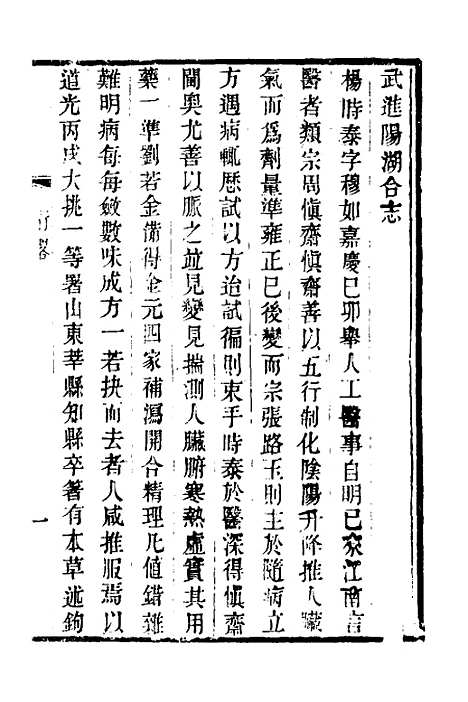 武進陽湖合志
楊時泰字穆如嘉慶己卯舉人工醫事自明已來江南言
醫者類宗周愼齋愼齋善以五行制化陰陽升降推人臟
氣而爲劑量準雍正已後變而宗張路玉則主於隨病立
方遇病輒歷試以方迨試徧則束手時泰於醫深得愼齋
閫奥尤善以脈之並見變見揣測人臟腑寒熱虛實其用
藥一準劉若金備得金元四家補瀉開合精理凡値錯雜
難明病每每斂數味成方一若抉而去者人咸推服焉以
道光丙戌大挑一等署山東莘縣知縣卒著有本草述鉤
行畧
一